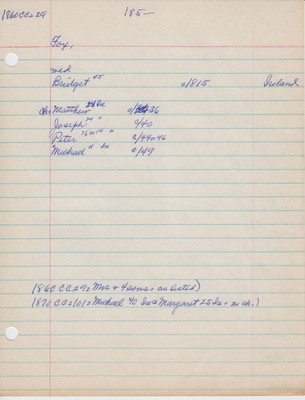 1860 CC: 29
185-
Fox,
wed
Bridget 45 c/1815 Ireland
ch: Matthew 24 c/36
Joseph 20 " c/40
Peter 16 or 14 " c/44 or 46
Michael 11 c/49
(1860 CC 29: Mrs & 4 sons, as listed)
(1870 CC: 101: Michael Margaret 25 no ch.)